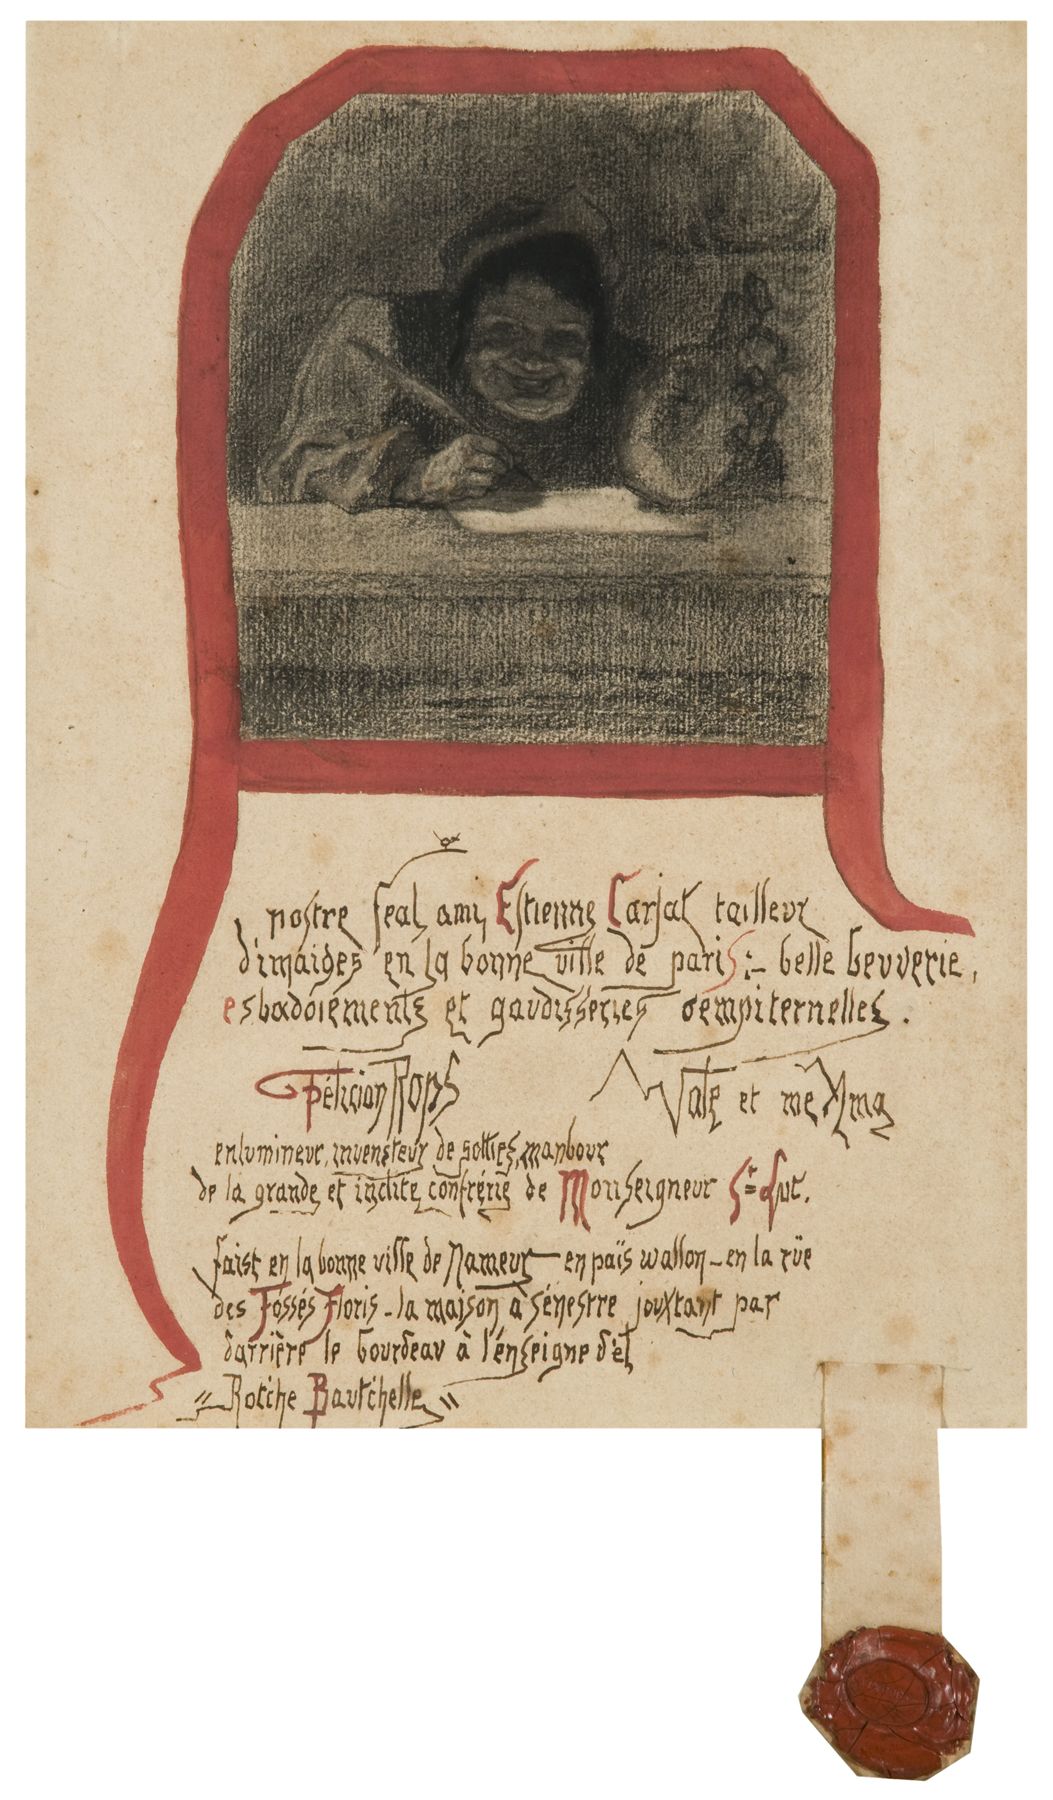 A nostre feal amy Estienne Carjat tailleur
d'imaiges en la bonne ville de paris :- belle beuverie,
esbadoiements et gaudisseries sempiternelles.
Félicion Rops Vale et me Ama
enlumineur, inventeur de sotties, manbour
de la grande et inclite confrérie de Monseigneur St Lut.
faist en la bonne ville de Nameur - en païs wallon - en la rüe
des Fossés Floris - la maison à sénestre jouxtant par
darrière le bourdeau à l'enseigne d'el
"Rotche Bautchelle"